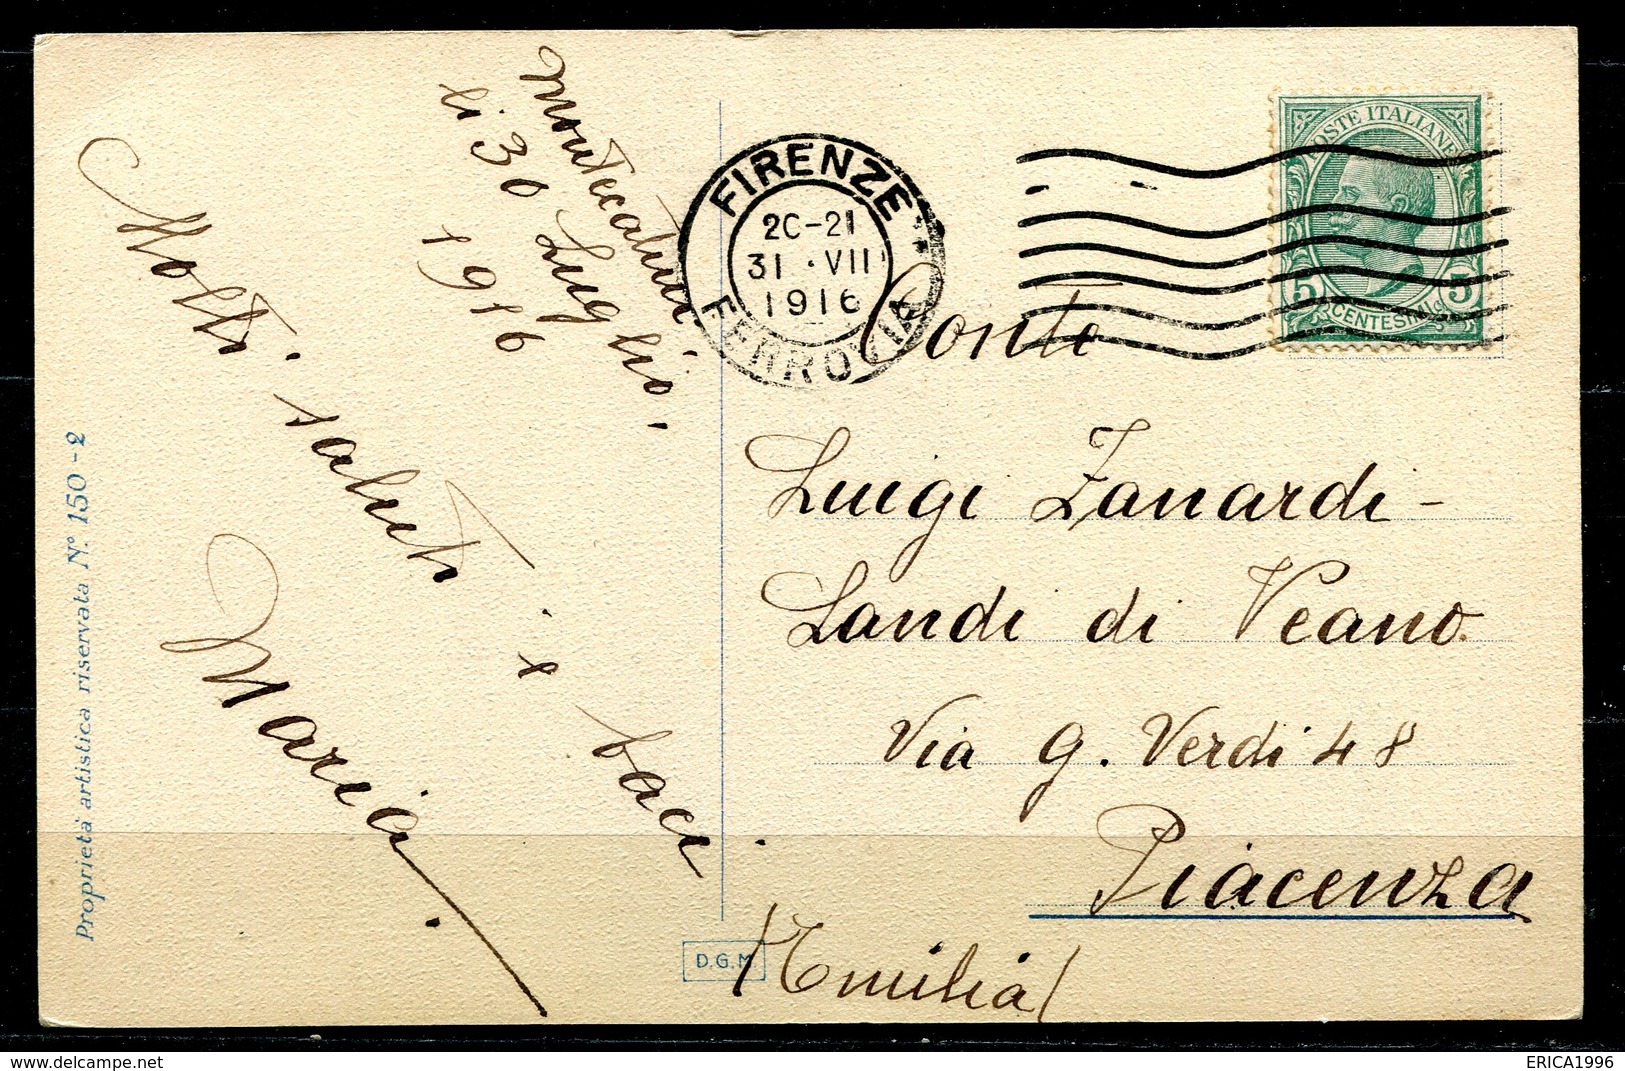 Montecatini
li 30 Luglio.
1916
Molti saluti e baci
Maria.
Proprietà artistica riservata Nº 150-2
D.G.M
FIRENZE
20-21
31 · VII
1916
FERROVIA
POSTE ITALIANE
5 CENTESIMI 5
Conte
Luigi Zanardi-
Landi di Veano.
Via G. Verdi 48
Piacenza
(Emilia)
ERICA1996